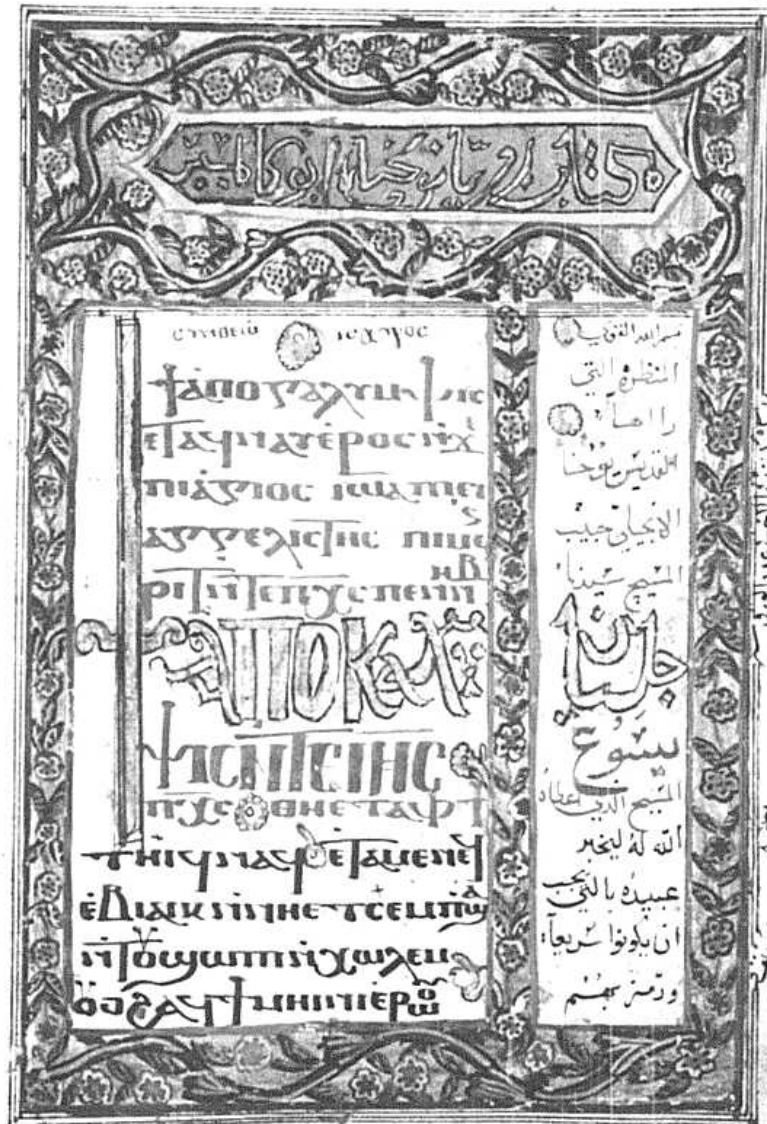 كتاب رويا يوحنا
ⲥⲩⲛⲑⲉⲱ ⲓⲥⲭⲩⲣⲟⲥ
ϯⲁⲡⲟⲕⲁⲗⲩⲙⲯⲓⲥ
ⲉⲧⲁϥⲛⲁⲩ ⲉⲣⲟⲥ ⲛϫⲉ
ⲡⲓⲁⲅⲓⲟⲥ ⲓⲱⲁ ⲡⲓⲉⲩ
ⲁⲅⲅⲉⲗⲓⲥⲧⲏⲥ ⲡⲓⲙⲉⲛ
ⲣⲓⲧ ⲛⲧⲉ ⲡⲭⲥ ⲡⲉⲛⲛⲏⲃ
ϯⲁⲡⲟⲕⲁⲗⲩⲙ
ⲯⲓⲥ ⲛⲧⲉ ⲓⲏⲥ
ⲡⲭⲥ ⲑⲏⲉⲧⲁ ⲫϯ
ⲧⲏⲓⲥ ⲛⲁϥ ⲉⲧⲁⲙⲉ ⲛⲉϥ
ⲉⲃⲓⲁⲓⲕ ⲛⲛⲏⲉⲧⲥⲉⲙⲡϣⲁ
ⲛⲧⲟⲩϣⲱⲡⲓ ⲛⲭⲱⲗⲉⲙ
ⲟⲩⲟϩ ⲁϥϯⲙⲏⲓⲛⲓ ⲉⲣⲱⲟⲩ
بسم الله القوي
المنظره التي
راها
القديس يوحنا
الانجيلي حبيب
المسيح سيدنا
جليان
يسوع
المسيح الذي اعطاه
الله له ليخبر
عبيده بالتي يجب
ان يكونوا سريعا
ورمز بهم